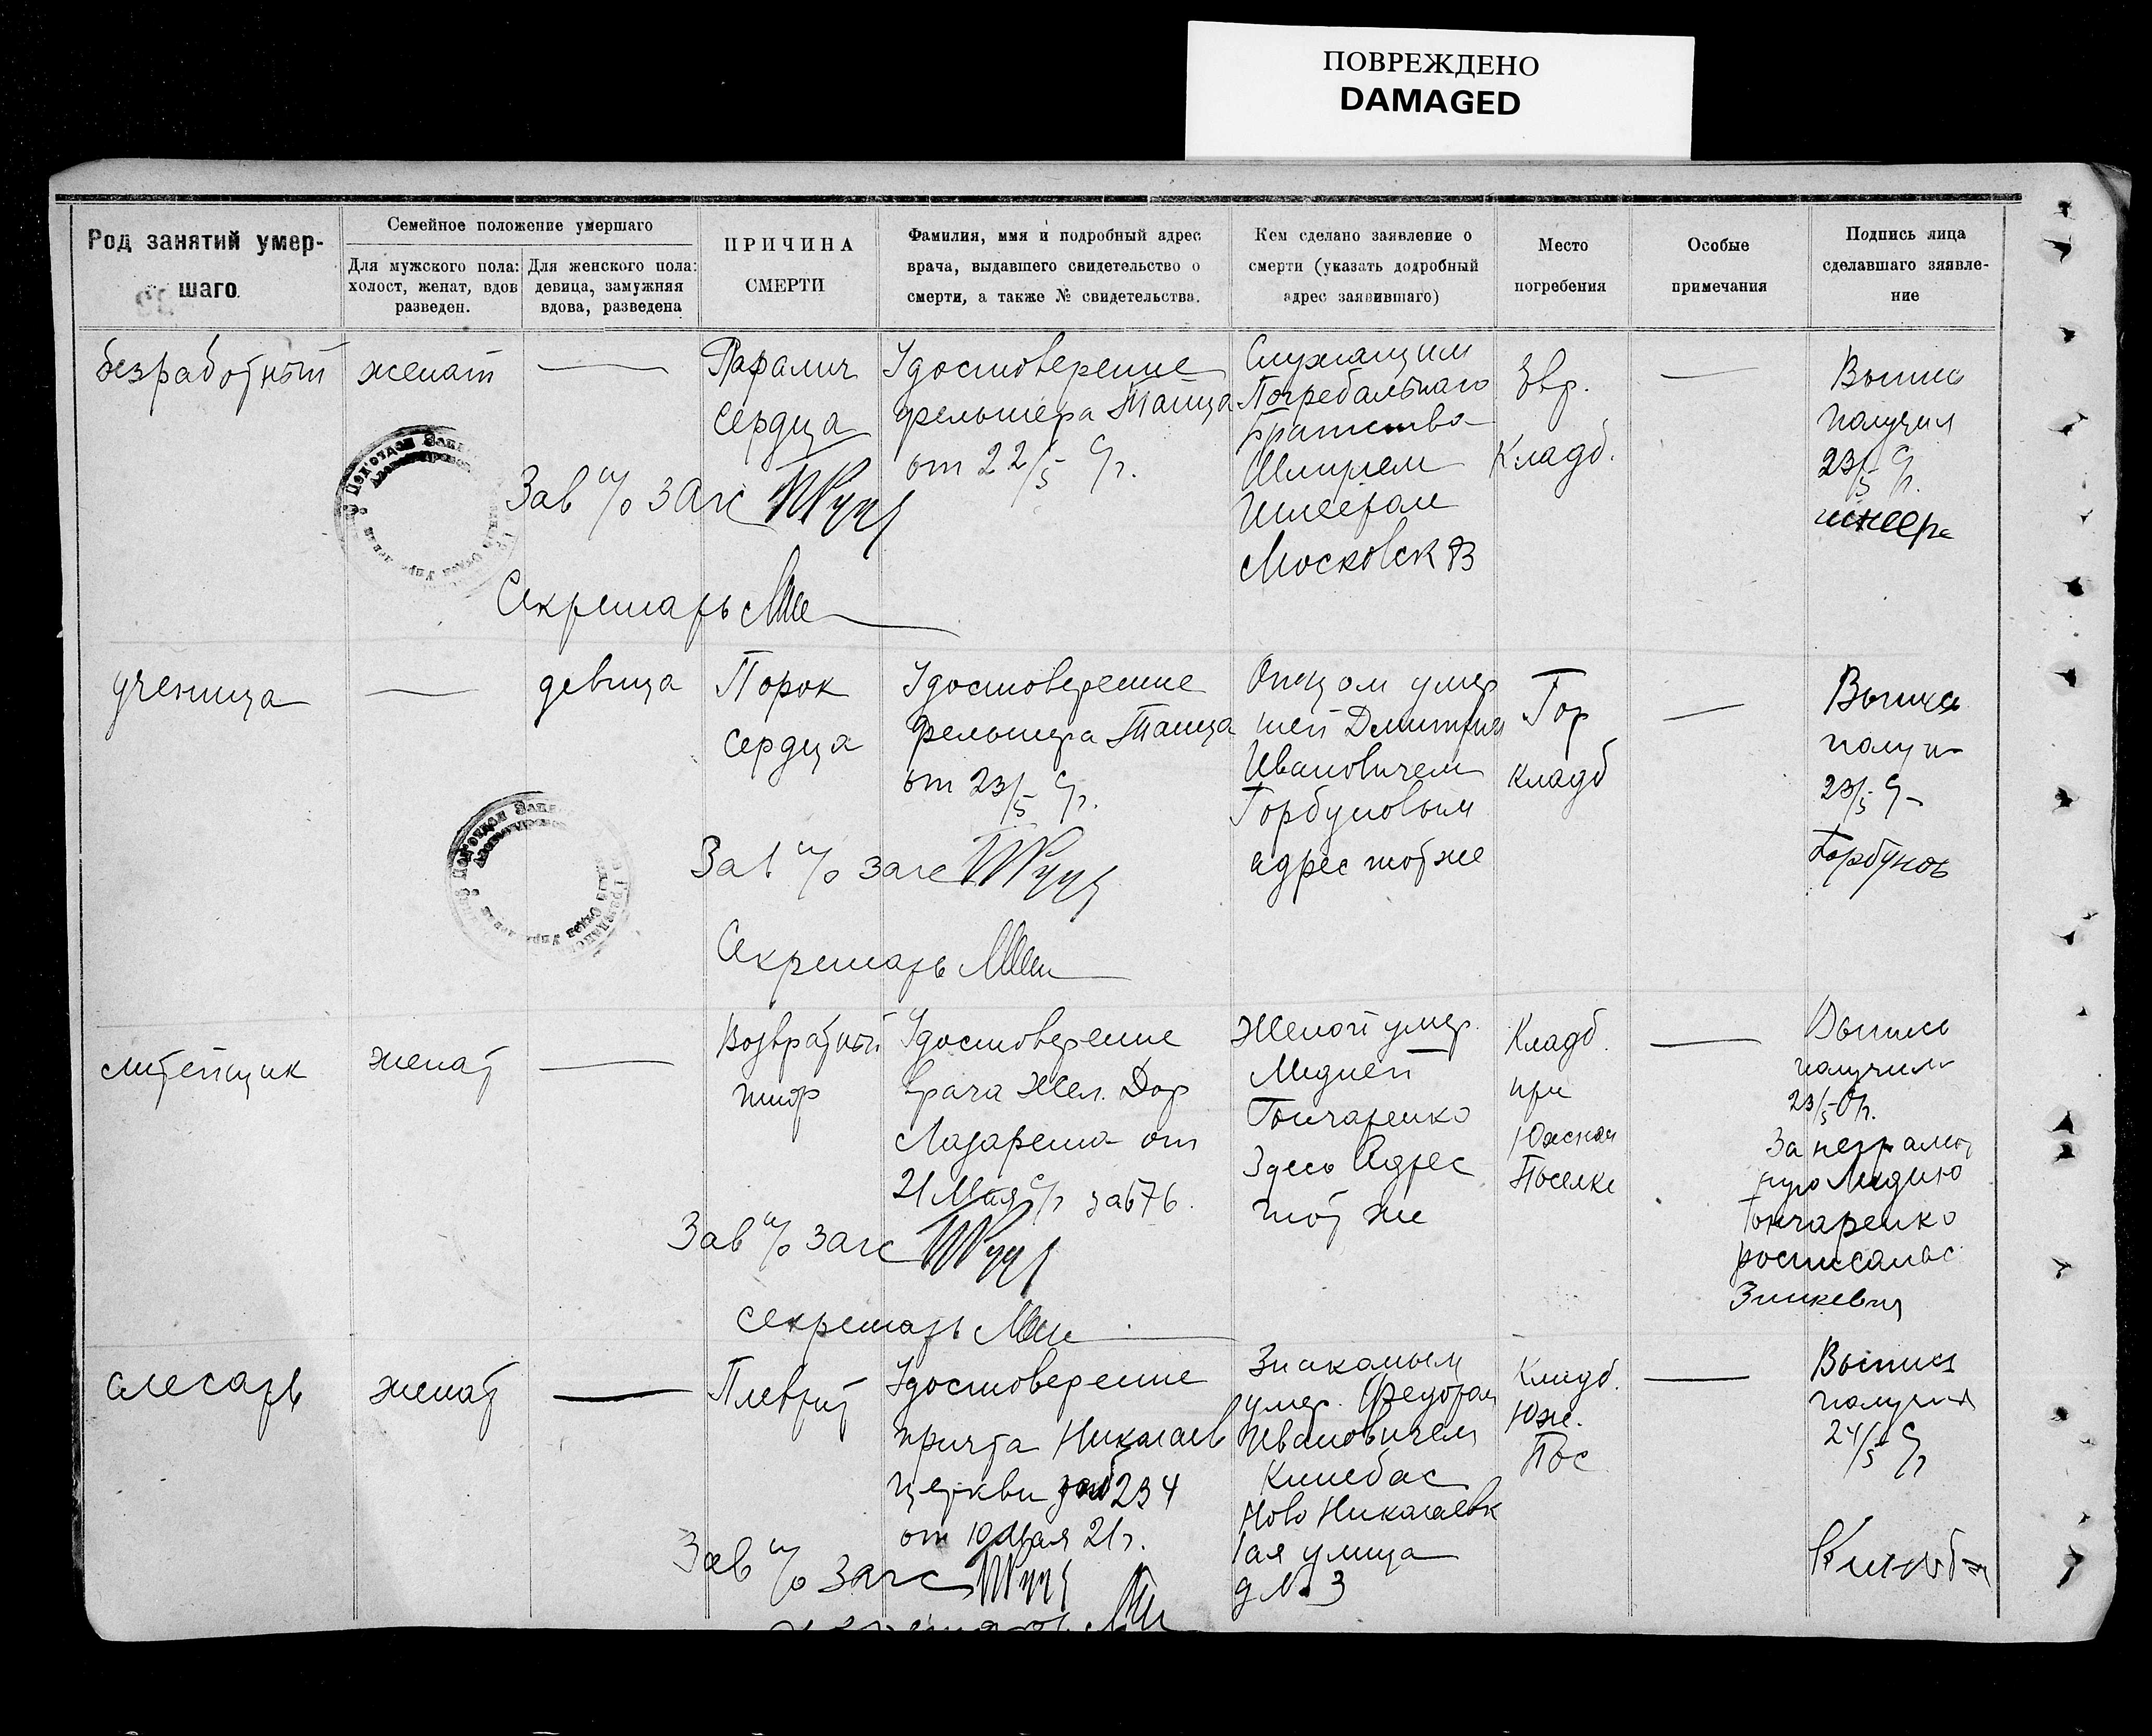 ПОВРЕЖДЕНО
DAMAGED
Род занятий умер-
шаго.
Семейное положение умершаго
Для мужского пола:
холост, женат, вдов
разведен.
Для женского пола:
девица, замужняя
вдова, разведена
ПРИЧИНА
СМЕРТИ
Фамилия, имя и подробный адрес
врача, выдавшего свидетельство о
смерти, а также № свидетельства.
Кем сделано заявление о
смерти (указать додробный
адрес заявившаго)
Место
погребения
Особые
примечания
Подпись лица
сделавшаго зяявле-
ние
безработный
женат
—
Паралич
сердца
Удостоверение
фельшера Танца
от 22/5 с/г.
Служащим
Погребальнаго
братства
Шмулем
Московск 83
Евр.
Кладб.
—
Выпис
получил
23/5 с/г.
Зав п/о загс
Секретарь
ученица
—
девица
Порок
сердца
Удостоверение
фельшера Танца
от 23/5 с/г.
Отцом умер
шей Дмитрия
Ивановичем
Горбуновым
адрес тот же
Гор
кладб
—
Выпись
получ
23/5 с/г
Горбунов
Зав п/о загс
Секретарь
литейщик
женат
—
Возвратный
тиф
Удостоверение
врача Жел. Дор
Лазарета от
21 Мая с/г за № 76.
Женой умер.
Лидией
Гончаренко
Здесь Адрес
тот же
Кладб.
при
Южном
Поселке
—
Выпись
получил
23/5 с/г.
За неграмот
ную Лидию
Гончаренко
росписалас
Зинкевич
Зав п/о загс
секретарь
слесарь
женат
—
Плеврит
Удостоверение
причта Николаев
церкви за № 234
от 10 Мая 21 г.
Знакомым
умер. Федором
Ивановичем
Кинебас
Ново Николаевк
ая улица
д № 3
Кладб.
Юж.
Пос
—
Выпись
получил
24/5 с/г
Зав п/о загс
секретарь